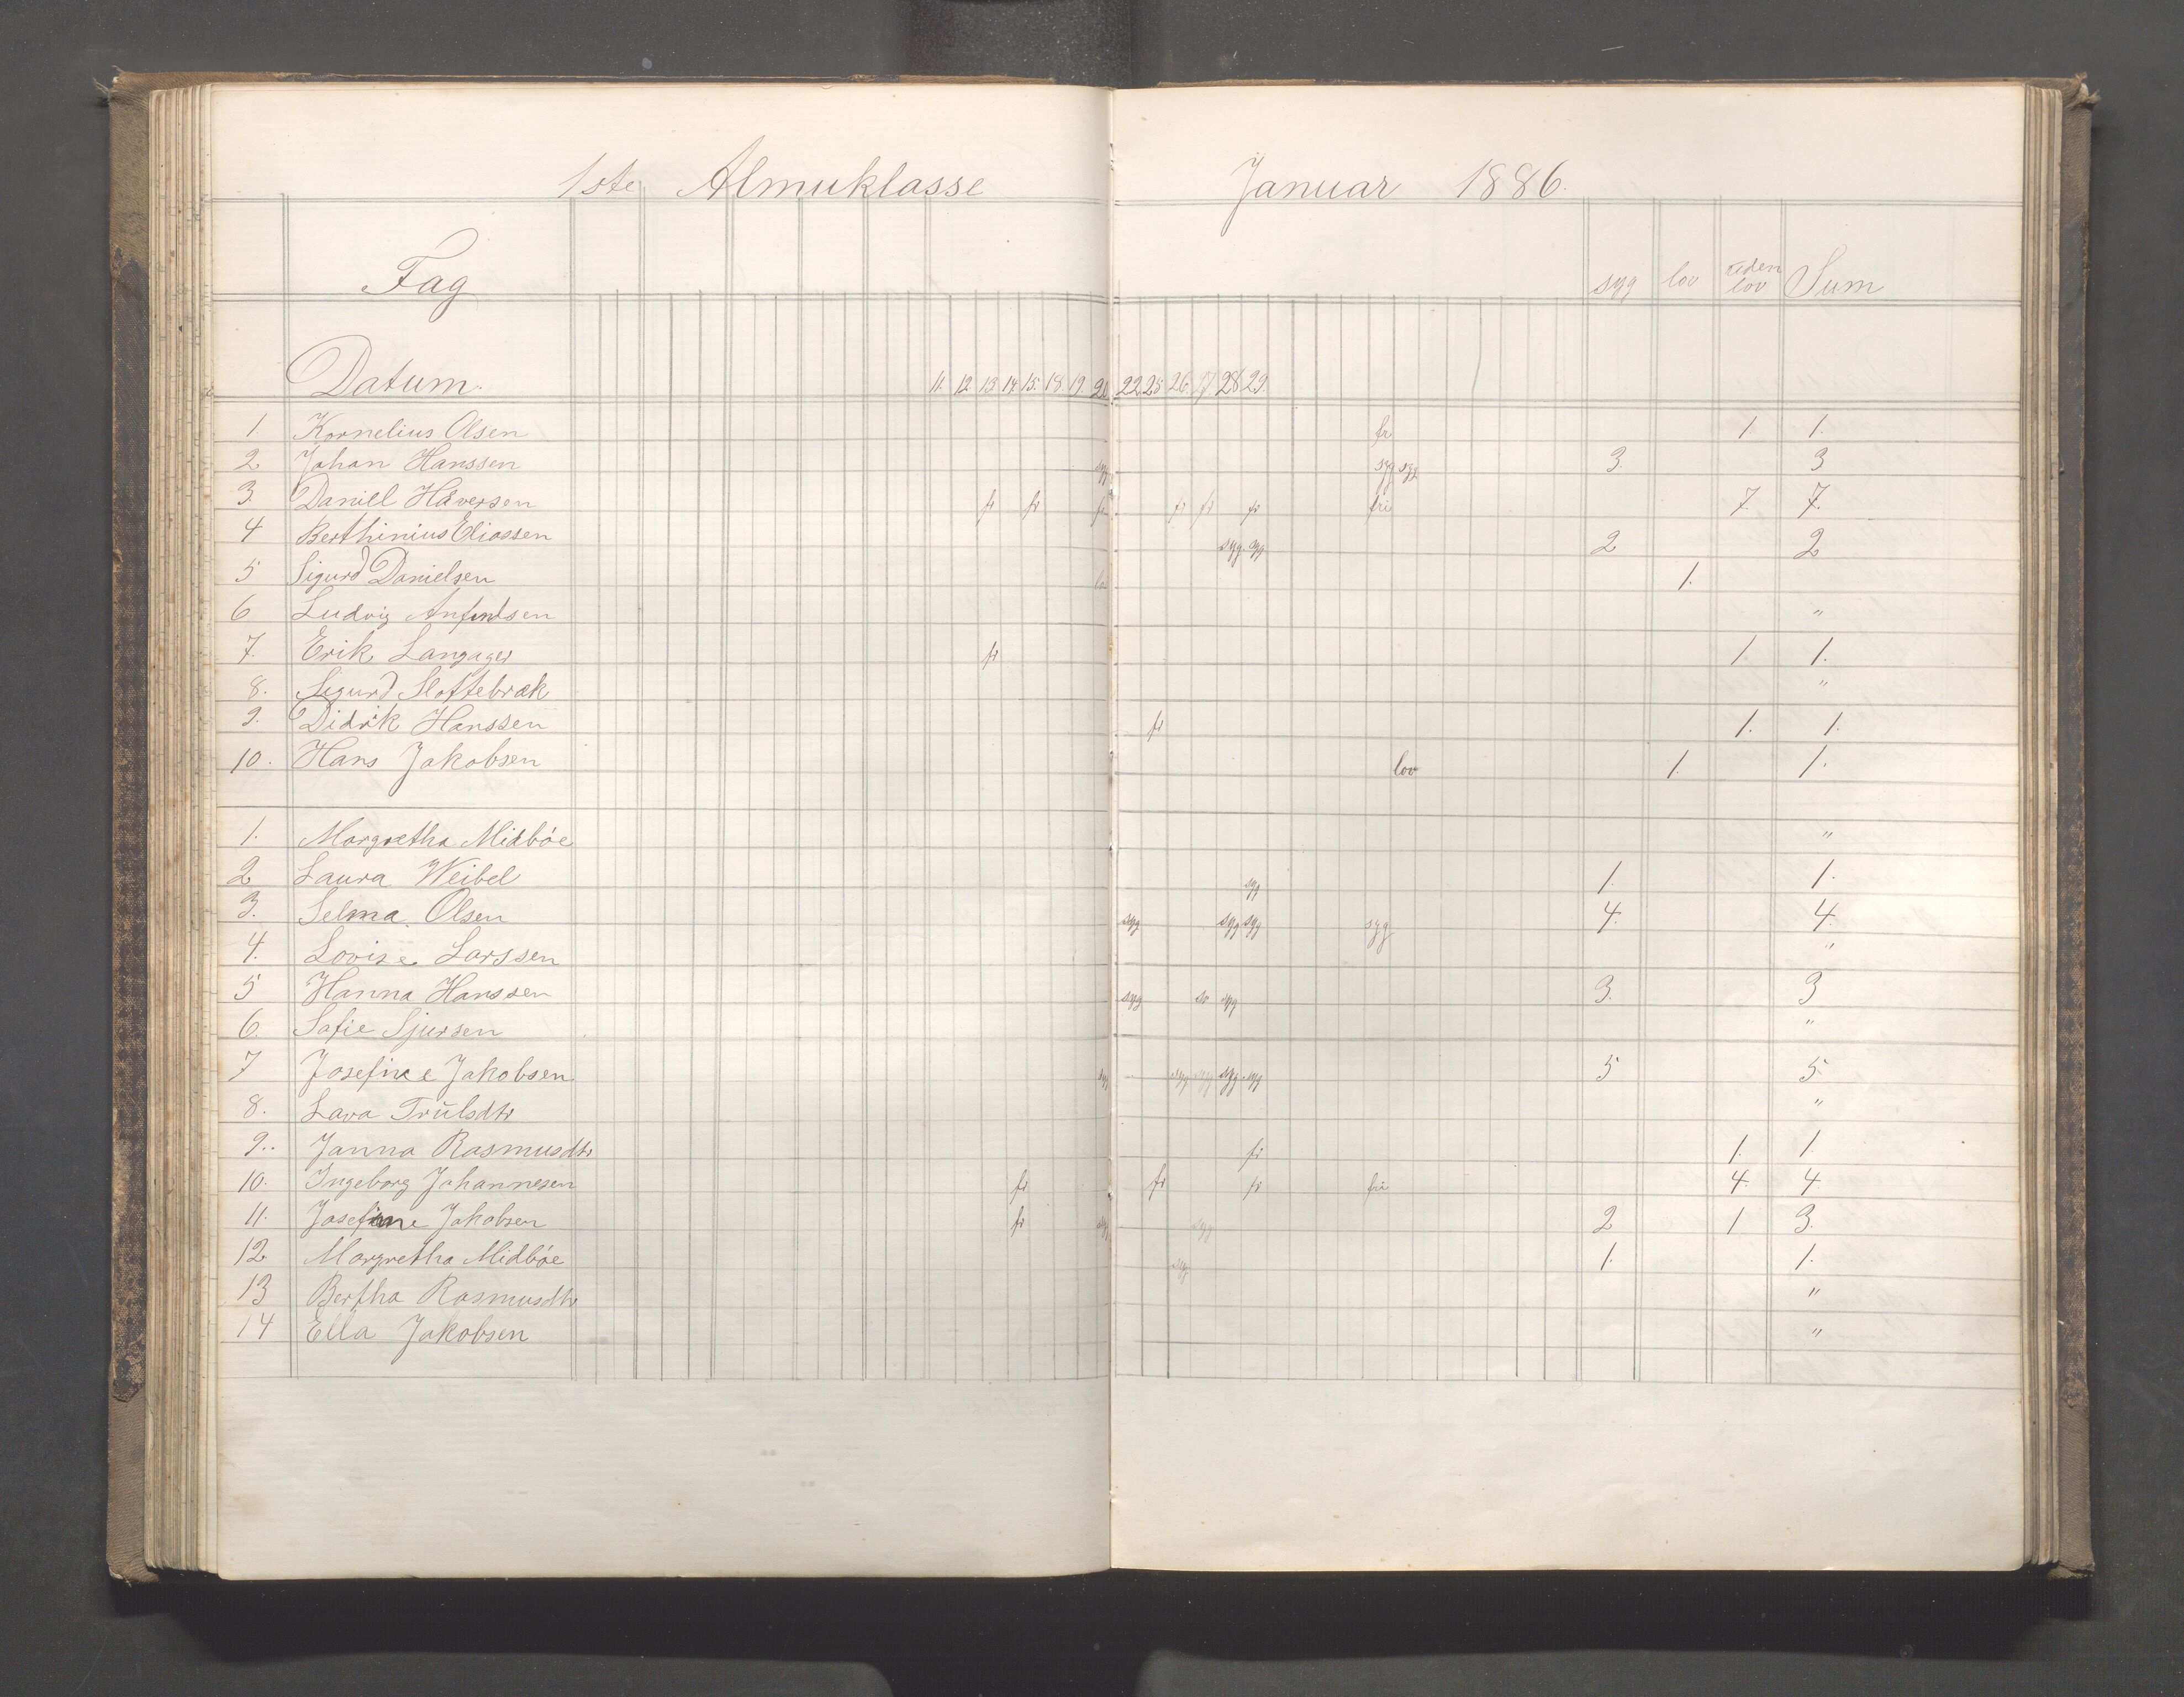 1ste Almuklasse Januar 1886.
Fag syg lov uden lov Sum
Datum. 11. 12 13 14. 15. 18. 19. 22 25 26 27. 28 29.
1. Kornelius Olsen fr 1. 1.
2 Johan Hanssen syg syg syg 3. 3
3. Daniel Håversen fr fr fr fr fr fr fri 7. 7.
4 Berthinius Eliassen syg. syg 2 2
5 Sigurd Danielsen lov 1.
6 Ludvig Anfindsen "
7. Erik Langager fr 1 1.
8. Sigurd Slottebræk "
9. Didrik Hanssen fr 1. 1.
10. Hans Jakobsen lov 1. 1.
1. Margretha Midbøe "
2 Laura Weibel syg 1. 1.
3. Selma Olsen syg syg syg syg 4. 4.
4. Lovise Larssen "
5 Hanna Hanssen syg syg 3. 3
6. Sofie Sjursen "
7 Josefine Jakobsen syg syg syg syg syg 5 5.
8. Lava Trŭlsdtr "
9.. Janna Rasmusdtr fr 1. 1.
10. Ingeborg Johannesen fr fr fr fri 4. 4
11. Josefine Jakobsen fr syg syg 2 1 3.
12 Margretha Midbøe syg 1. 1.
13 Bertha Rasmusdtr "
14 Ella Jakobsen "